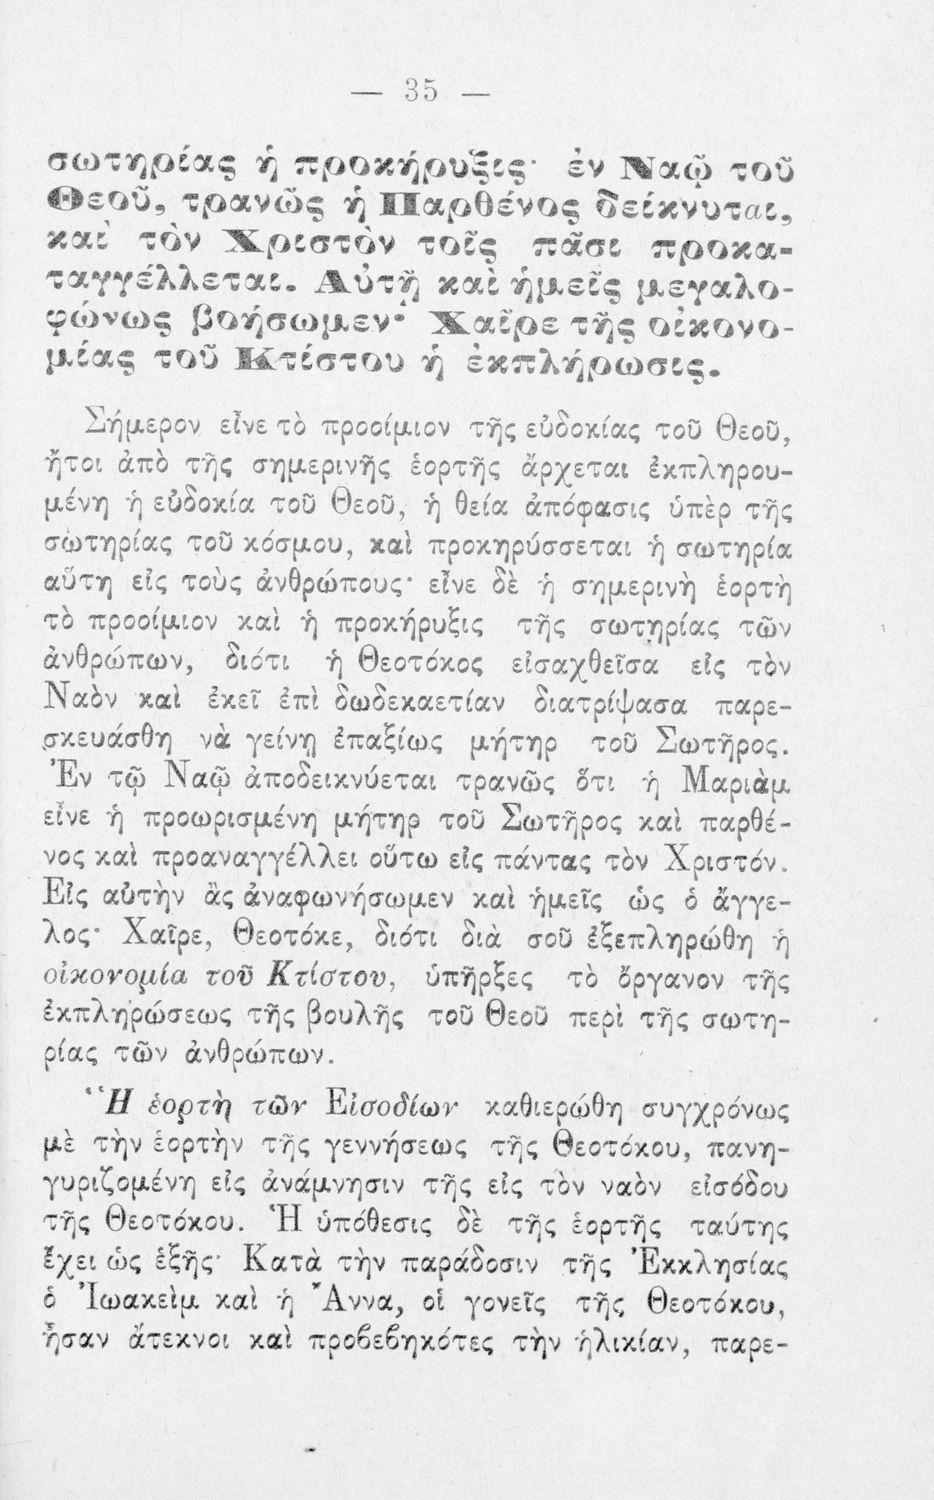 — 35 —
σωτηρίας ἡ προκήρυξις· ἐν Ναῷ τοῦ
Θεοῦ, τρανῶς ἡ Παρθένος δείκνυται,
καὶ τὸν Χριστὸν τοῖς πᾶσι προκα-
ταγγέλλεται. Αὐτῇ καὶ ἡμεῖς μεγαλο-
φώνως βοήσωμεν· Χαῖρε τῆς οἰκονο-
μίας τοῦ Κτίστου ἡ ἐκπλήρωσις.
Σήμερον εἶνε τὸ προοίμιον τῆς εὐδοκίας τοῦ Θεοῦ,
ἤτοι ἀπὸ τῆς σημερινῆς ἑορτῆς ἄρχεται ἐκπληρου-
μένη ἡ εὐδοκία τοῦ Θεοῦ, ἡ θεία ἀπόφασις ὑπὲρ τῆς
σωτηρίας τοῦ κόσμου, καὶ προκηρύσσεται ἡ σωτηρία
αὕτη εἰς τοὺς ἀνθρώπους· εἶνε δὲ ἡ σημερινὴ ἑορτὴ
τὸ προοίμιον καὶ ἡ προκήρυξις τῆς σωτηρίας τῶν
ἀνθρώπων, διότι ἡ Θεοτόκος εἰσαχθεῖσα εἰς τὸν
Ναὸν καὶ ἐκεῖ ἐπὶ δωδεκαετίαν διατρίψασα παρε-
σκευάσθη νὰ γείνῃ ἐπαξίως μήτηρ τοῦ Σωτῆρος.
Ἐν τῷ Ναῷ ἀποδεικνύεται τρανῶς ὅτι ἡ Μαριὰμ
εἶνε ἡ προωρισμένη μήτηρ τοῦ Σωτῆρος καὶ παρθέ-
νος καὶ προαναγγέλλει οὕτω εἰς πάντας τὸν Χριστόν.
Εἰς αὐτὴν ἂς ἀναφωνήσωμεν καὶ ἡμεῖς ὡς ὁ ἄγγε-
λος· Χαῖρε, Θεοτόκε, διότι διὰ σοῦ ἐξεπληρώθη ἡ
οἰκονομία τοῦ Κτίστου, ὑπῆρξες τὸ ὄργανον τῆς
ἐκπληρώσεως τῆς βουλῆς τοῦ Θεοῦ περὶ τῆς σωτη-
ρίας τῶν ἀνθρώπων.
Ἡ ἑορτὴ τῶν Εἰσοδίων καθιερώθη συγχρόνως
μὲ τὴν ἑορτὴν τῆς γεννήσεως τῆς Θεοτόκου, πανη-
γυριζομένη εἰς ἀνάμνησιν τῆς εἰς τὸν ναὸν εἰσόδου
τῆς Θεοτόκου. Ἡ ὑπόθεσις δὲ τῆς ἑορτῆς ταύτης
ἔχει ὡς ἑξῆς· Κατὰ τὴν παράδοσιν τῆς Ἐκκλησίας
ὁ Ἰωακεὶμ καὶ ἡ Ἄννα, οἱ γονεῖς τῆς Θεοτόκου,
ἦσαν ἄτεκνοι καὶ προβεβηκότες τὴν ἡλικίαν, παρε-